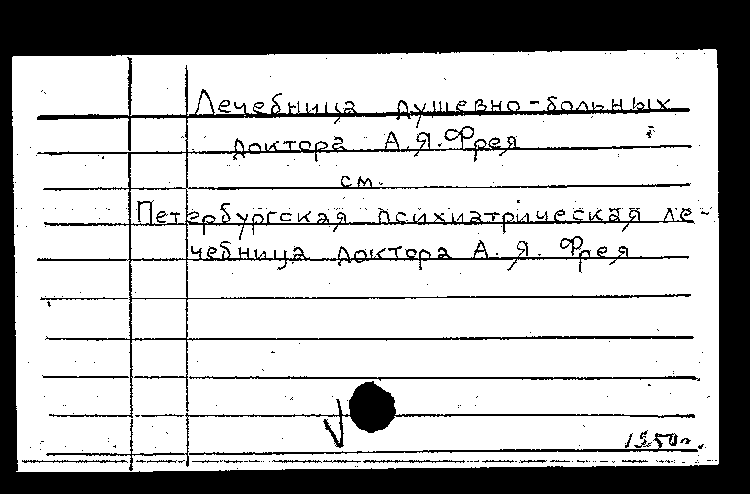 Лечебница душевно-больных
доктора А.Я.Фрея
см.
Петербургская психиатрическая ле-
чебница доктора А. Я. Фрея